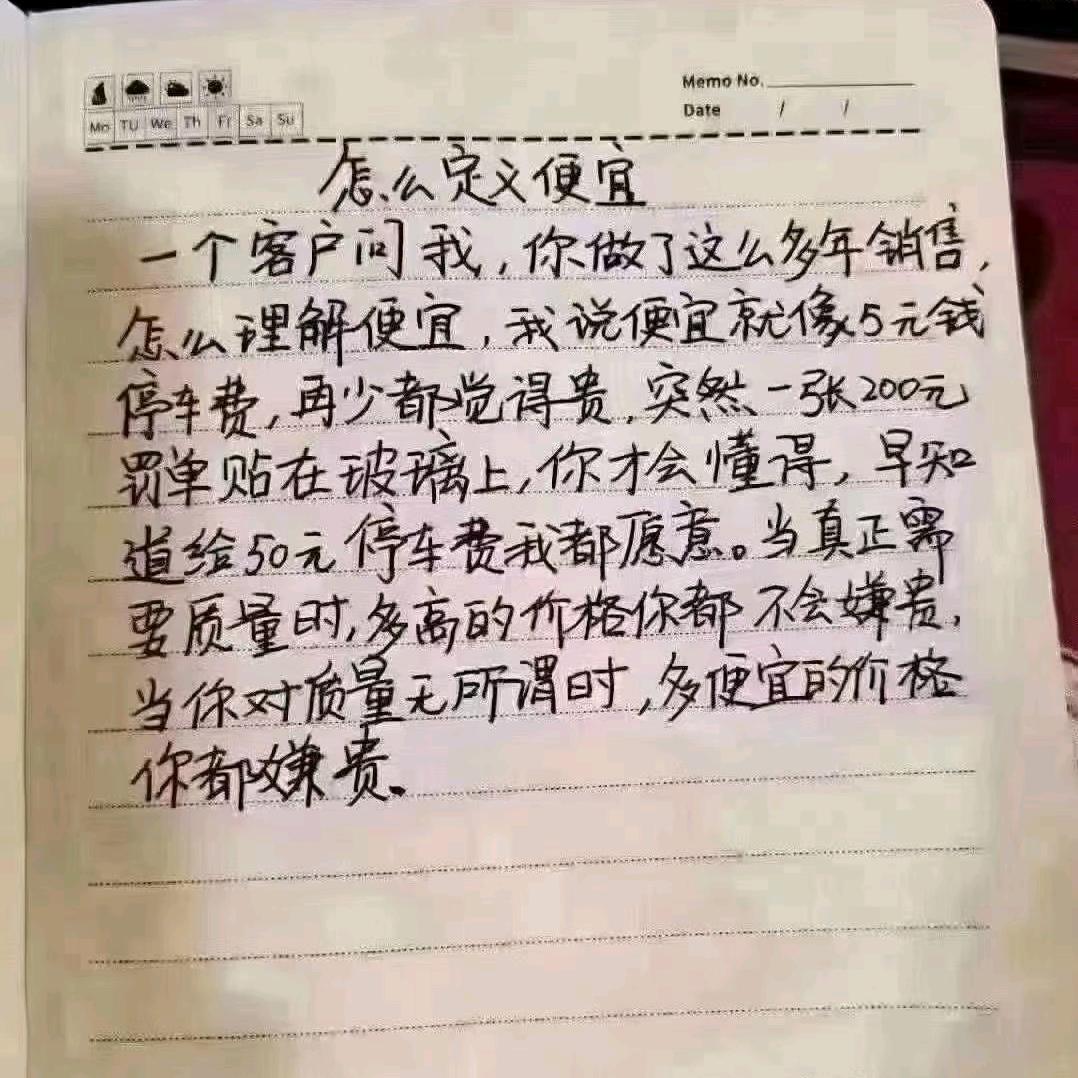 Memo No.
Mo TU We Th Fr Sa Su
Date / /
怎么定义便宜
一个客户问我,你做了这么多年销售,
怎么理解便宜,我说便宜就像5元钱
停车费,再少都觉得贵,突然一张200元
罚单贴在玻璃上,你才会懂得,早知
道给50元停车费我都愿意。当真正需
要质量时,多高的价格你都不会嫌贵,
当你对质量无所谓时,多便宜的价格
你都嫌贵。